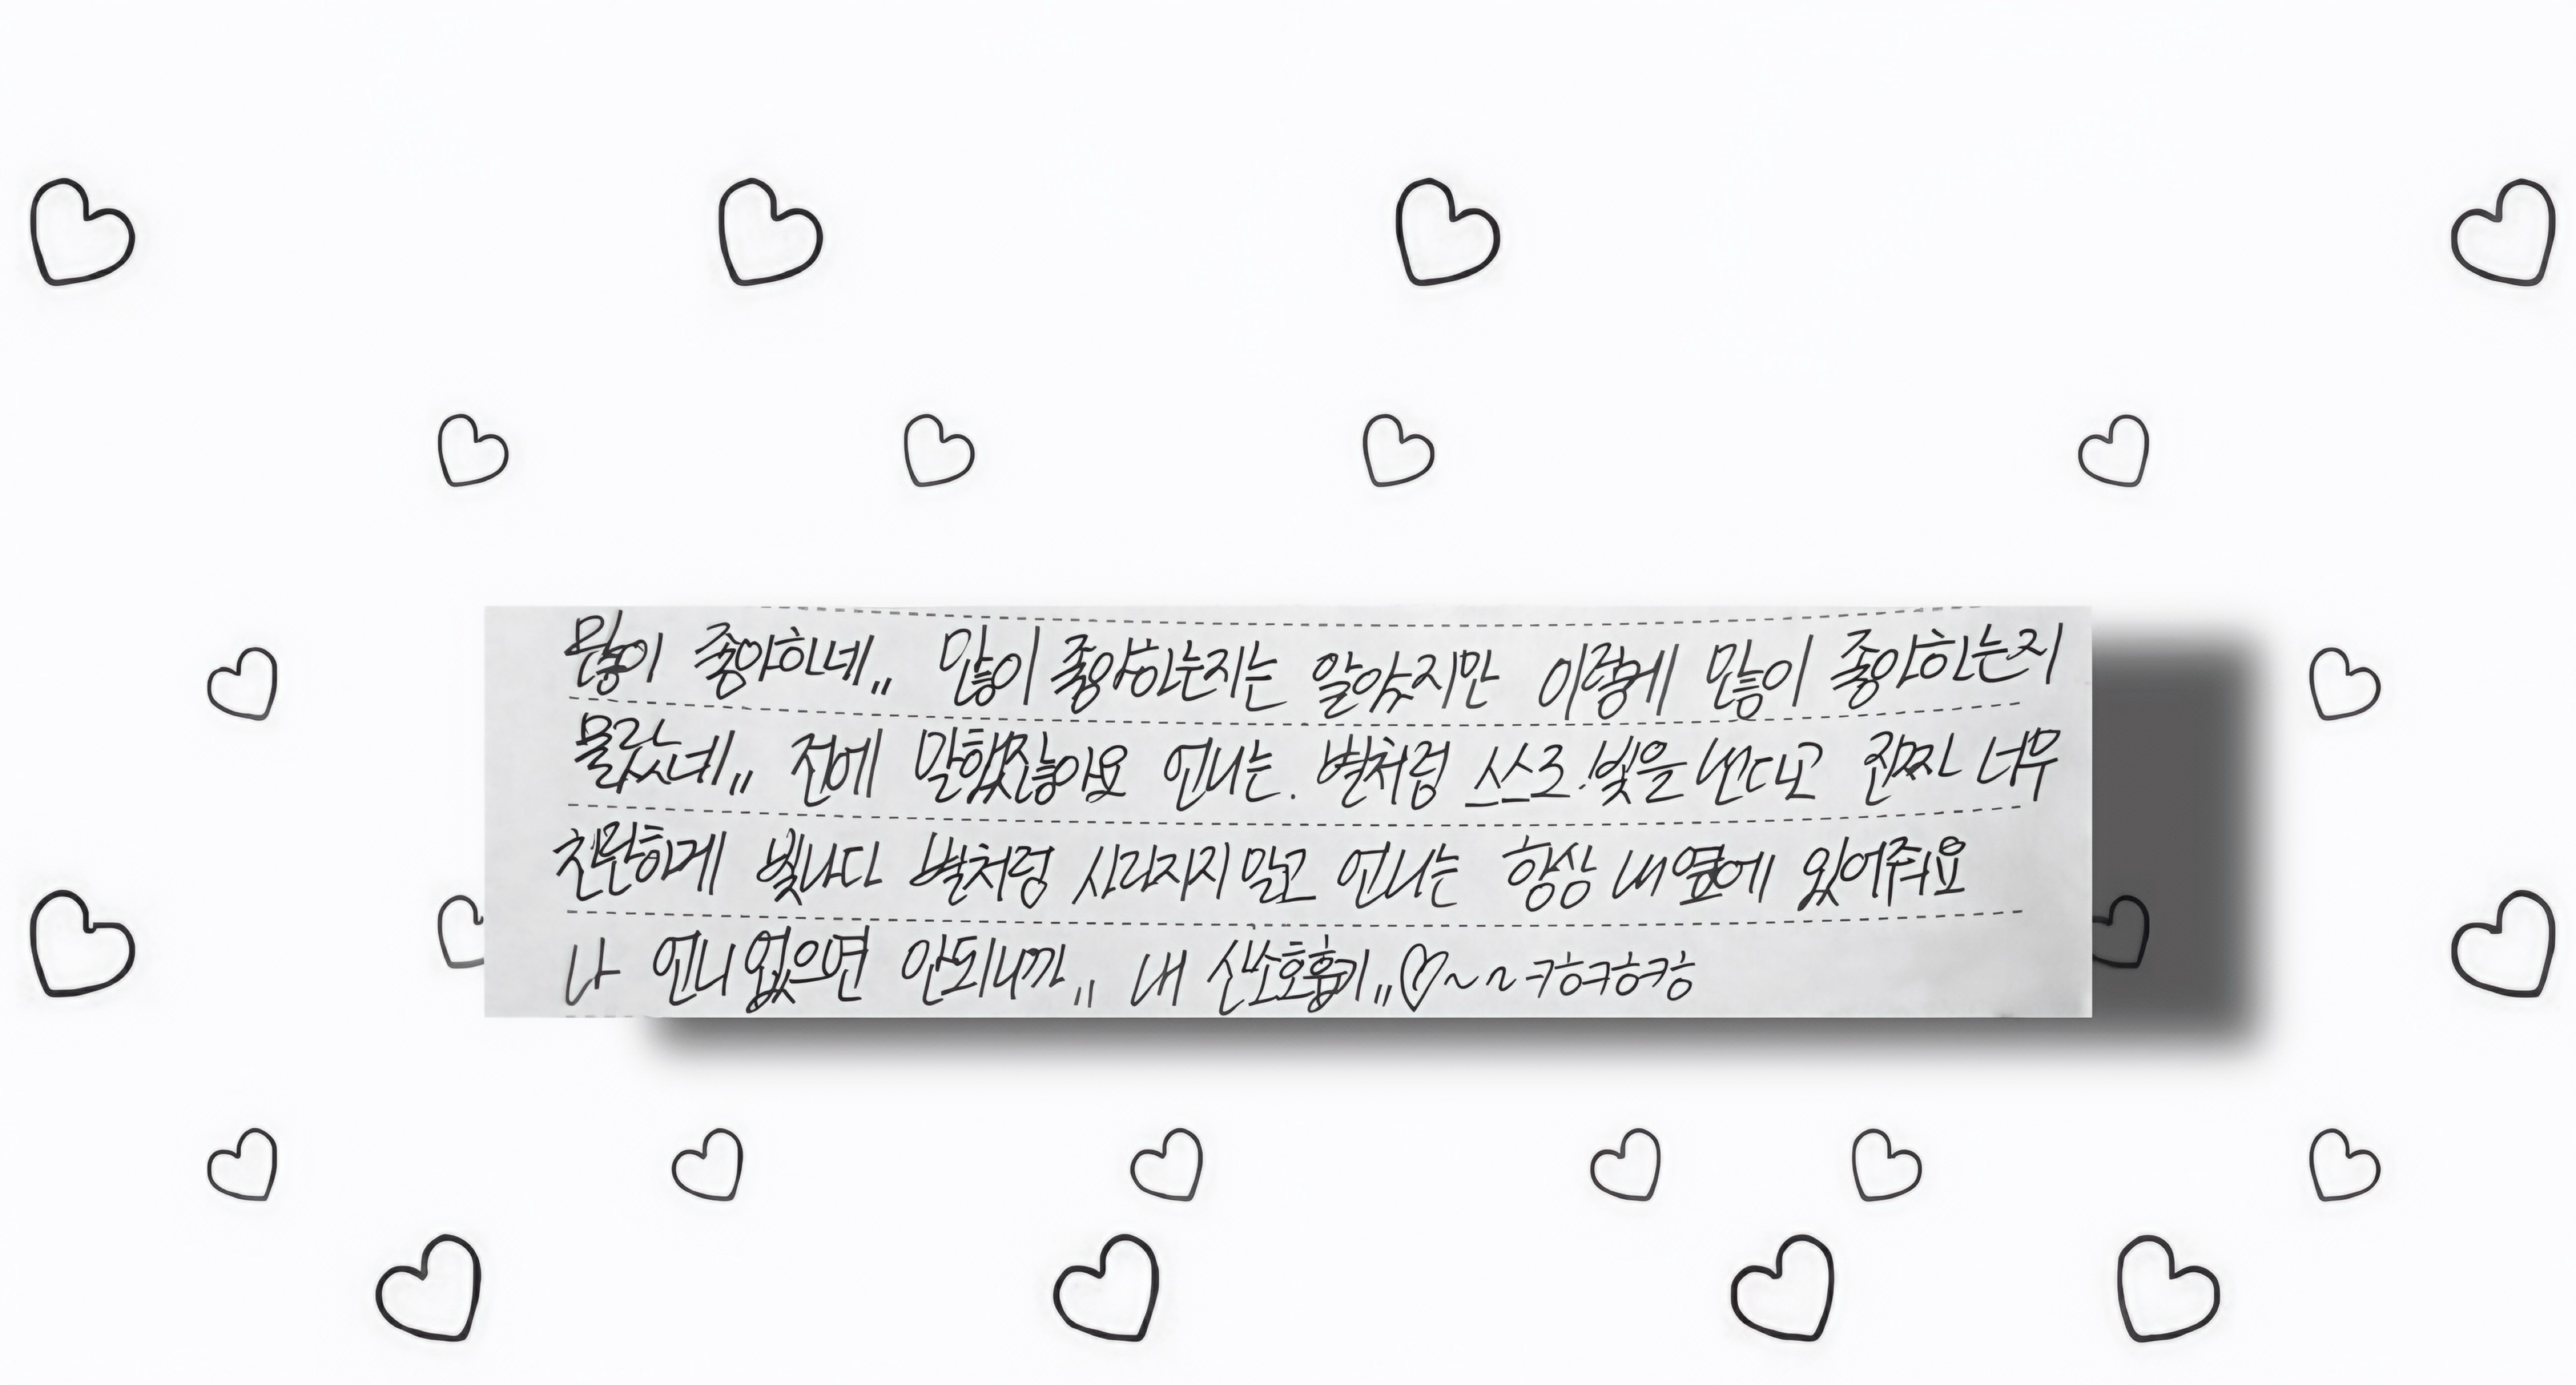 많이 좋아하네,, 많이 좋아하는지는 알았지만 이렇게 많이 좋아하는지
몰랐네,, 전에 말했잖아요 언니는. 별처럼 스스로 빛을 낸다고 진짜 너무
찬란하게 빛나다 별처럼 사라지지 말고 언니는 항상 내 옆에 있어줘요
나 언니 없으면 안되니까,, 내 산소호흡기,,♡~~ㅋㅎㅋㅎㅋㅎ